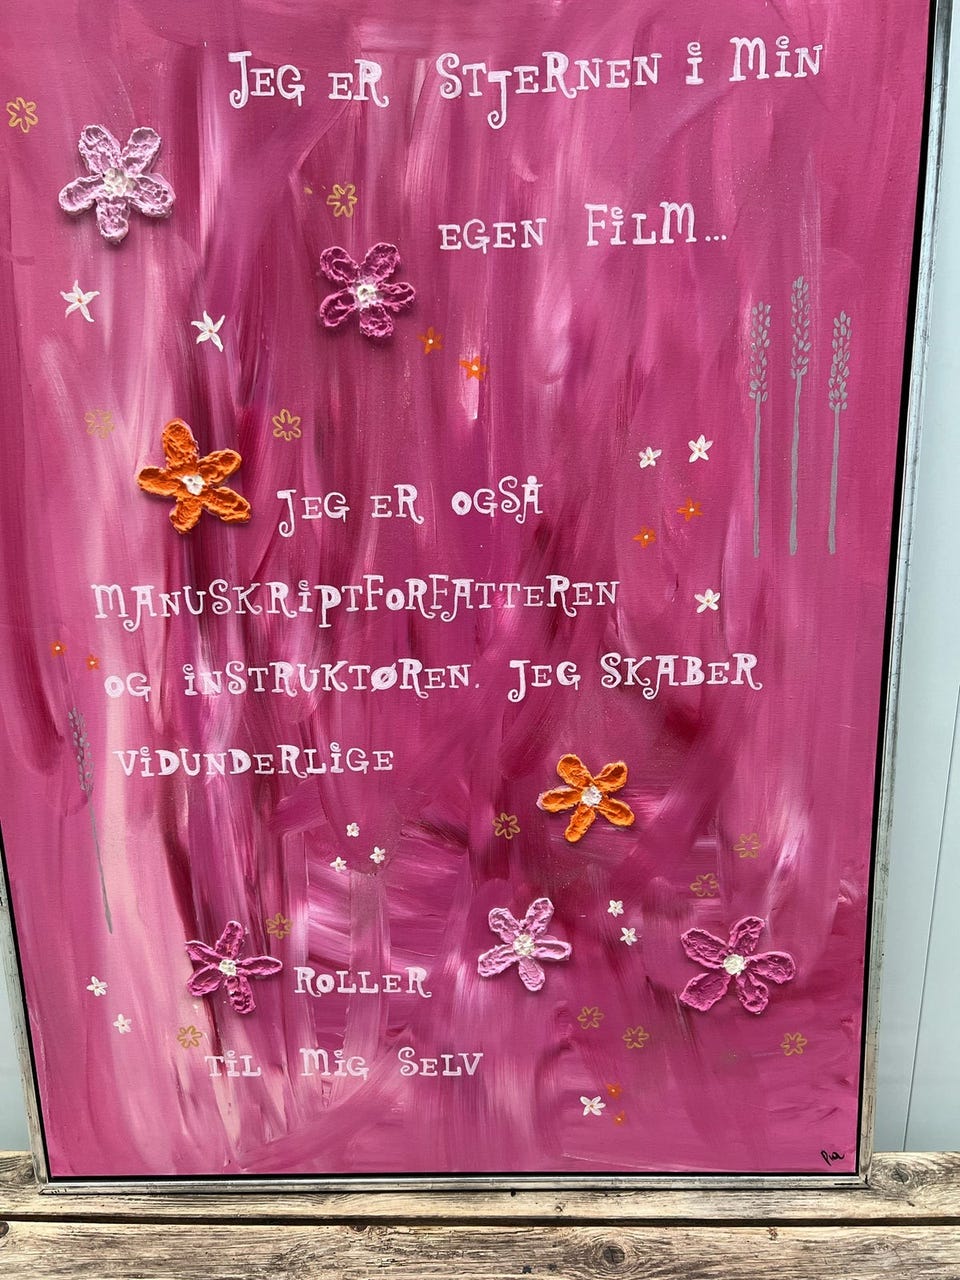 JEG ER STJERNEN i MiN
EGEN FiLM...
JEG ER OGSÅ
MANUSKRiPTFORFATTEREN
OG iNSTRUKTØREN. JEG SKABER
ViDUNDERLiGE
ROLLER
TiL MiG SELV
Pia